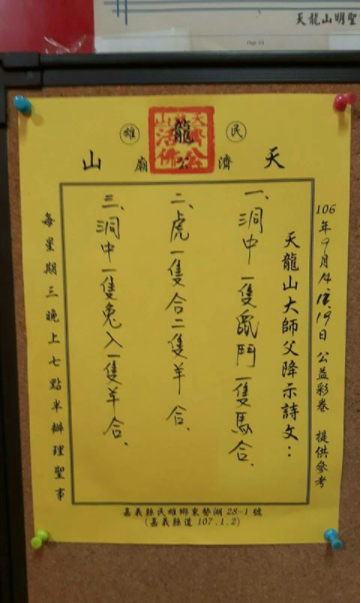 天龍山明聖
民 雄
天龍山
濟公廟
106年9月 19日 公益彩卷 提供參考
天龍山大師父降示詩文：
一、洞中一隻鼠鬥一隻馬合.
二、虎一隻合二隻羊合.
三、洞中一隻兔入一隻羊合.
每星期三晚上七點半辦理聖事
嘉義縣民雄鄉東勢湖28-1號
(嘉義縣道107.1.2)